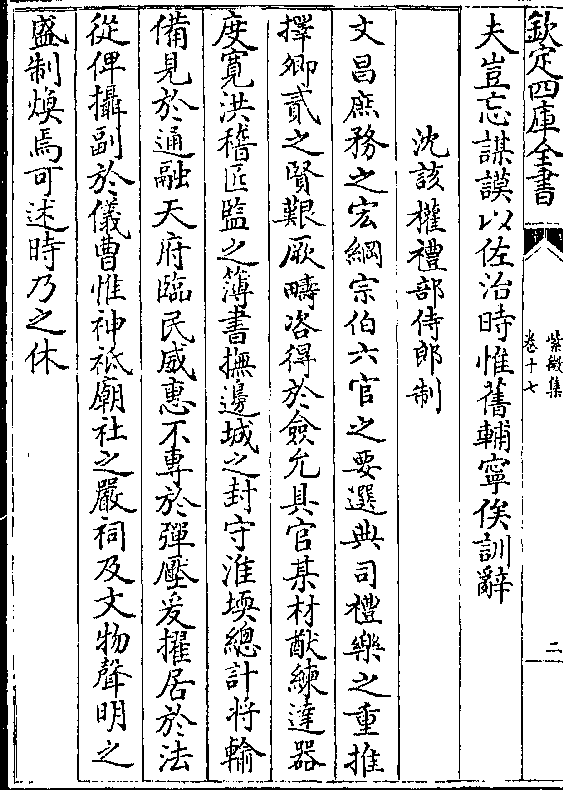 欽定四庫全書
紫微集
卷十七
二
夫豈忘謀謨以佐治時惟舊輔寧俟訓辭
沈該權禮部侍郎制
文昌庶務之宏綱宗伯六官之要選典司禮樂之重推
擇卿貳之賢艱厥疇咨得於僉允具官某材猷練達器
度寛洪稽匠監之簿書撫邊城之封守淮堧總計將輸
備見於通融天府臨民威惠不専於彈壓爰擢居於法
從俾攝副於儀曹惟神祗廟社之嚴祠及文物聲明之
盛制煥焉可述時乃之休